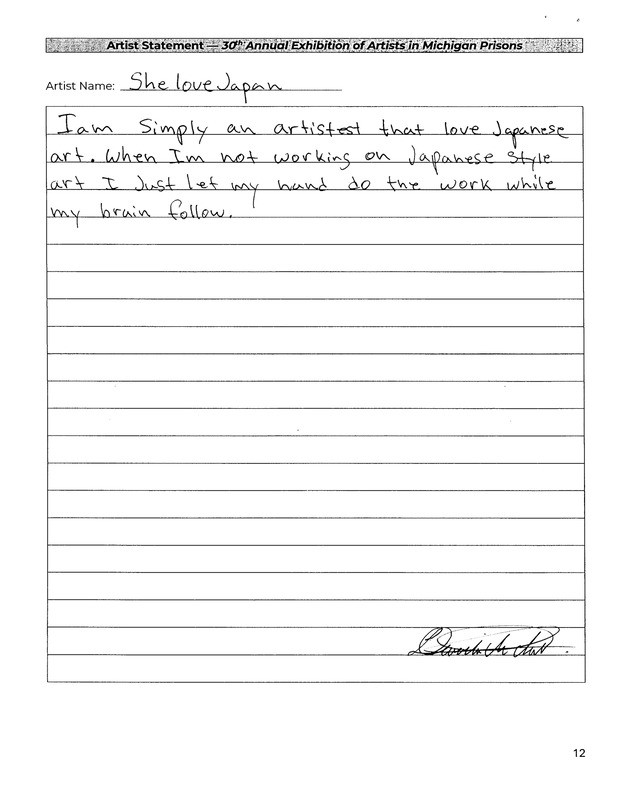 Artist Statement — 30th Annual Exhibition of Artists in Michigan Prisons
Artist Name: She love Japan
I am Simply an artistest that love Japanese
art. When Im not working on Japanese Style
art I Just let my hand do the work while
my brain follow.
12